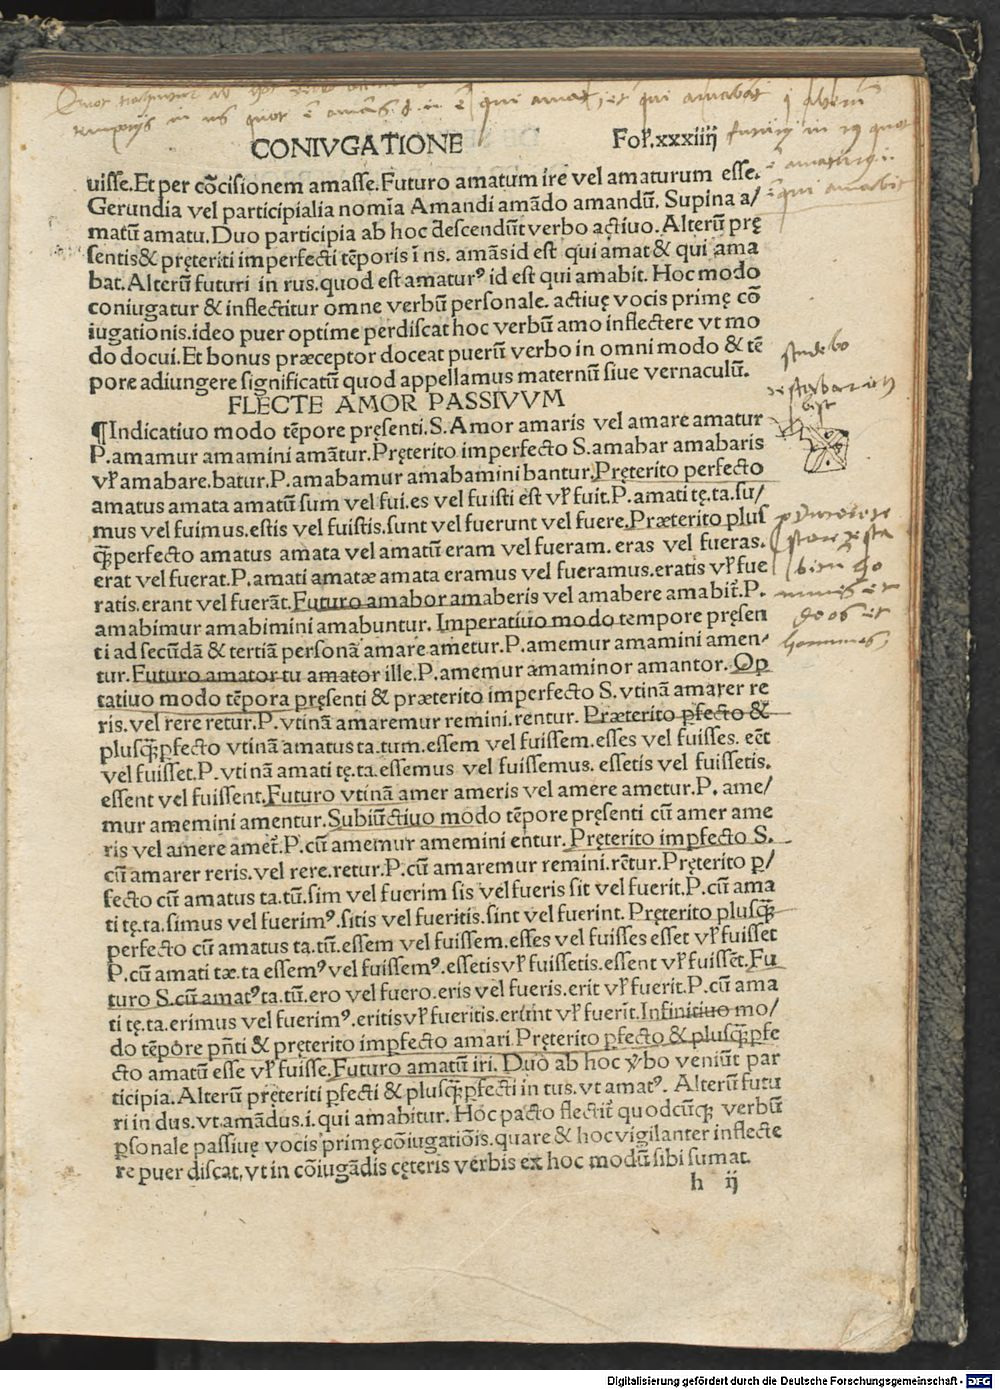 CONIVGATIONE Fol̛.xxxiiij
uisse.Et per cōcisionem amasse.Futuro amatum ire vel amaturum esse.
Gerundia vel participialia nomīa Amandi amādo amandū. Supina a/
matū amatu.Duo participia ab hoc descendūt verbo actiuo. Alterū prę
sentis& pręteriti imperfecti tēporis ī ns. amās id est qui amat & qui ama
bat. Alterū futuri in rus.quod est amaturꝰ id est qui amabit. Hoc modo
coniugatur & inflectitur omne verbū personale. actiuę vocis primę cō
iugationis.ideo puer optime perdiscat hoc verbū amo inflectere vt mo
do docui.Et bonus præceptor doceat puerū verbo in omni modo & tē
pore adiungere significatū quod appellamus maternū siue vernaculū.
FLECTE AMOR PASSIVVM
¶Indicatiuo modo tēpore pręsenti.S.Amor amaris vel amare amatur
P.amamur amamini amātur.Pręterito imperfecto S.amabar amabaris
vl̛ amabare.batur.P.amabamur amabamini bantur.Pręterito perfecto
amatus amata amatū sum vel fui.es vel fuisti est vl̛ fuit.P.amati tę.ta.su/
mus vel fuimus.estis vel fuistis.sunt vel fuerunt vel fuere.Præterito plus
ꝗ̄perfecto amatus amata vel amatū eram vel fueram. eras vel fueras.
erat vel fuerat.P.amati amatæ amata eramus vel fueramus.eratis vl̛ fue
ratis.erant vel fuerāt.Futuro amabor amaberis vel amabere amabit̄.P.
amabimur amabimini amabuntur. Imperatiuo modo tempore pręsen
ti ad secūdā & tertiā personā amare ametur.P.amemur amamini amen/
tur.Futuro amator tu amator ille.P.amemur amaminor amantor. Op
tatiuo modo tēpora pręsenti & præterito imperfecto S.vtinā amarer re
ris.vel rere retur.P.vtinā amaremur remini.rentur. Præterito ꝑfecto &
plusꝗ̄ꝑfecto vtinā amatus ta.tum.essem vel fuissem.esses vel fuisses. eēt
vel fuisset.P.vtinā amati tę.ta.essemus vel fuissemus. essetis vel fuissetis.
essent vel fuissent.Futuro vtinā amer ameris vel amere ametur.P. ame/
mur amemini amentur.Subiūctiuo modo tēpore pręsenti cū amer ame
ris vel amere amet̄.P.cū amemur amemini entur. Pręterito impfecto S.
cū amarer reris.vel rere.retur.P.cū amaremur remini.rētur.Pręterito ꝑ/
fecto cū amatus ta.tū.sim vel fuerim sis vel fueris sit vel fuerit.P.cū ama
ti tę.ta.simus vel fuerimꝰ.sitis vel fueritis.sint vel fuerint. Pręterito plusꝗ̄
perfecto cū amatus ta.tū.essem vel fuissem.esses vel fuisses esset vl̛ fuisset
P.cū amati tæ.ta essemꝰ vel fuissemꝰ.essetis vl̛ fuissetis.essent vl̛ fuissēt.Fu
turo S.cū amatꝰ ta.tū.ero vel fuero.eris vel fueris.erit vl̛ fuerit.P.cū ama
ti tę.ta.erimus vel fuerimꝰ.eritis vl̛ fueritis.erūnt vl̛ fuerīt.Infinitiuo mo/
do tēpore pn̄ti & pręterito imꝑfecto amari.Pręterito ꝑfecto & plusꝗ̄ꝑfe
cto amatū esse vl̛ fuisse.Futuro amatū iri. Duo ab hoc v̄bo veniūt par
ticipia.Alterū pręteriti ꝑfecti & plusꝗ̄ꝑfecti in tus.vt amatꝰ. Alterū futu
ri in dus.vt.amādus.i.qui amabitur. Hoc pacto flectit̄ quodcūꝗ verbū
ꝑsonale passiuę vocis primę cōiugatiōis.quare & hoc vigilanter inflecte
re puer discat.vt in cōiugādis cęteris verbis ex hoc modū sibi sumat.
h ij
Digitalisierung gefördert durch die Deutsche Forschungsgemeinschaft - DFG